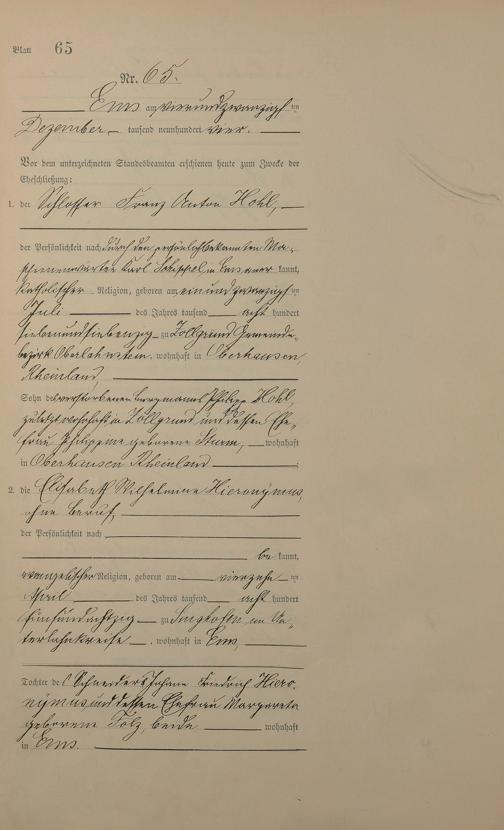 Blatt 65
Nr. 65.
Ems am vierundzwanzigsten
Dezember tausend neunhundert vier.
Vor dem unterzeichneten Standesbeamten erschienen heute zum Zwecke der
Eheschließung:
1. der Schlosser Franz Anton Hohl,
der Persönlichkeit nach durch den persönlich bekannten Ma-
schinenwärter Karl in Ems anerkannt,
katholischer Religion, geboren am einundzwanzigsten
Juli des Jahres tausend acht hundert
siebenundsiebenzig zu Zollgrund Gemeinde-
bezirk Oberlahnstein, wohnhaft in Oberhausen,
Rheinland,
Sohn des verstorbenen Bergmanns Philipp Hohl,
zuletzt wohnhaft in Zollgrund und dessen Ehe-
frau Philippine geborene Sturm, wohnhaft
in Oberhausen Rheinland
2. die Elisabeth Wilhelmine Hieronymus,
ohne Beruf,
der Persönlichkeit nach
bekannt,
evangelischer Religion, geboren am vierzehnten
April des Jahres tausend acht hundert
fünfundachtzig zu Singhofen im Un-
terlahnkreise, wohnhaft in Ems,
Tochter des Schneiders Johann Friedrich Hiero-
nymus und dessen Ehefrau Margareta
geborene Tölz, beide wohnhaft
in Ems.